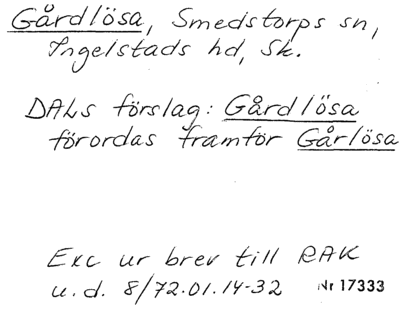 Gårdlösa, Smedstorps sn,
Ingelstads hd, Sk.
DALs förslag: Gårdlösa
förordas framför Gårlösa
Exc ur brev till RAK
u.d. 8/72.01.14-32 Nr 17333